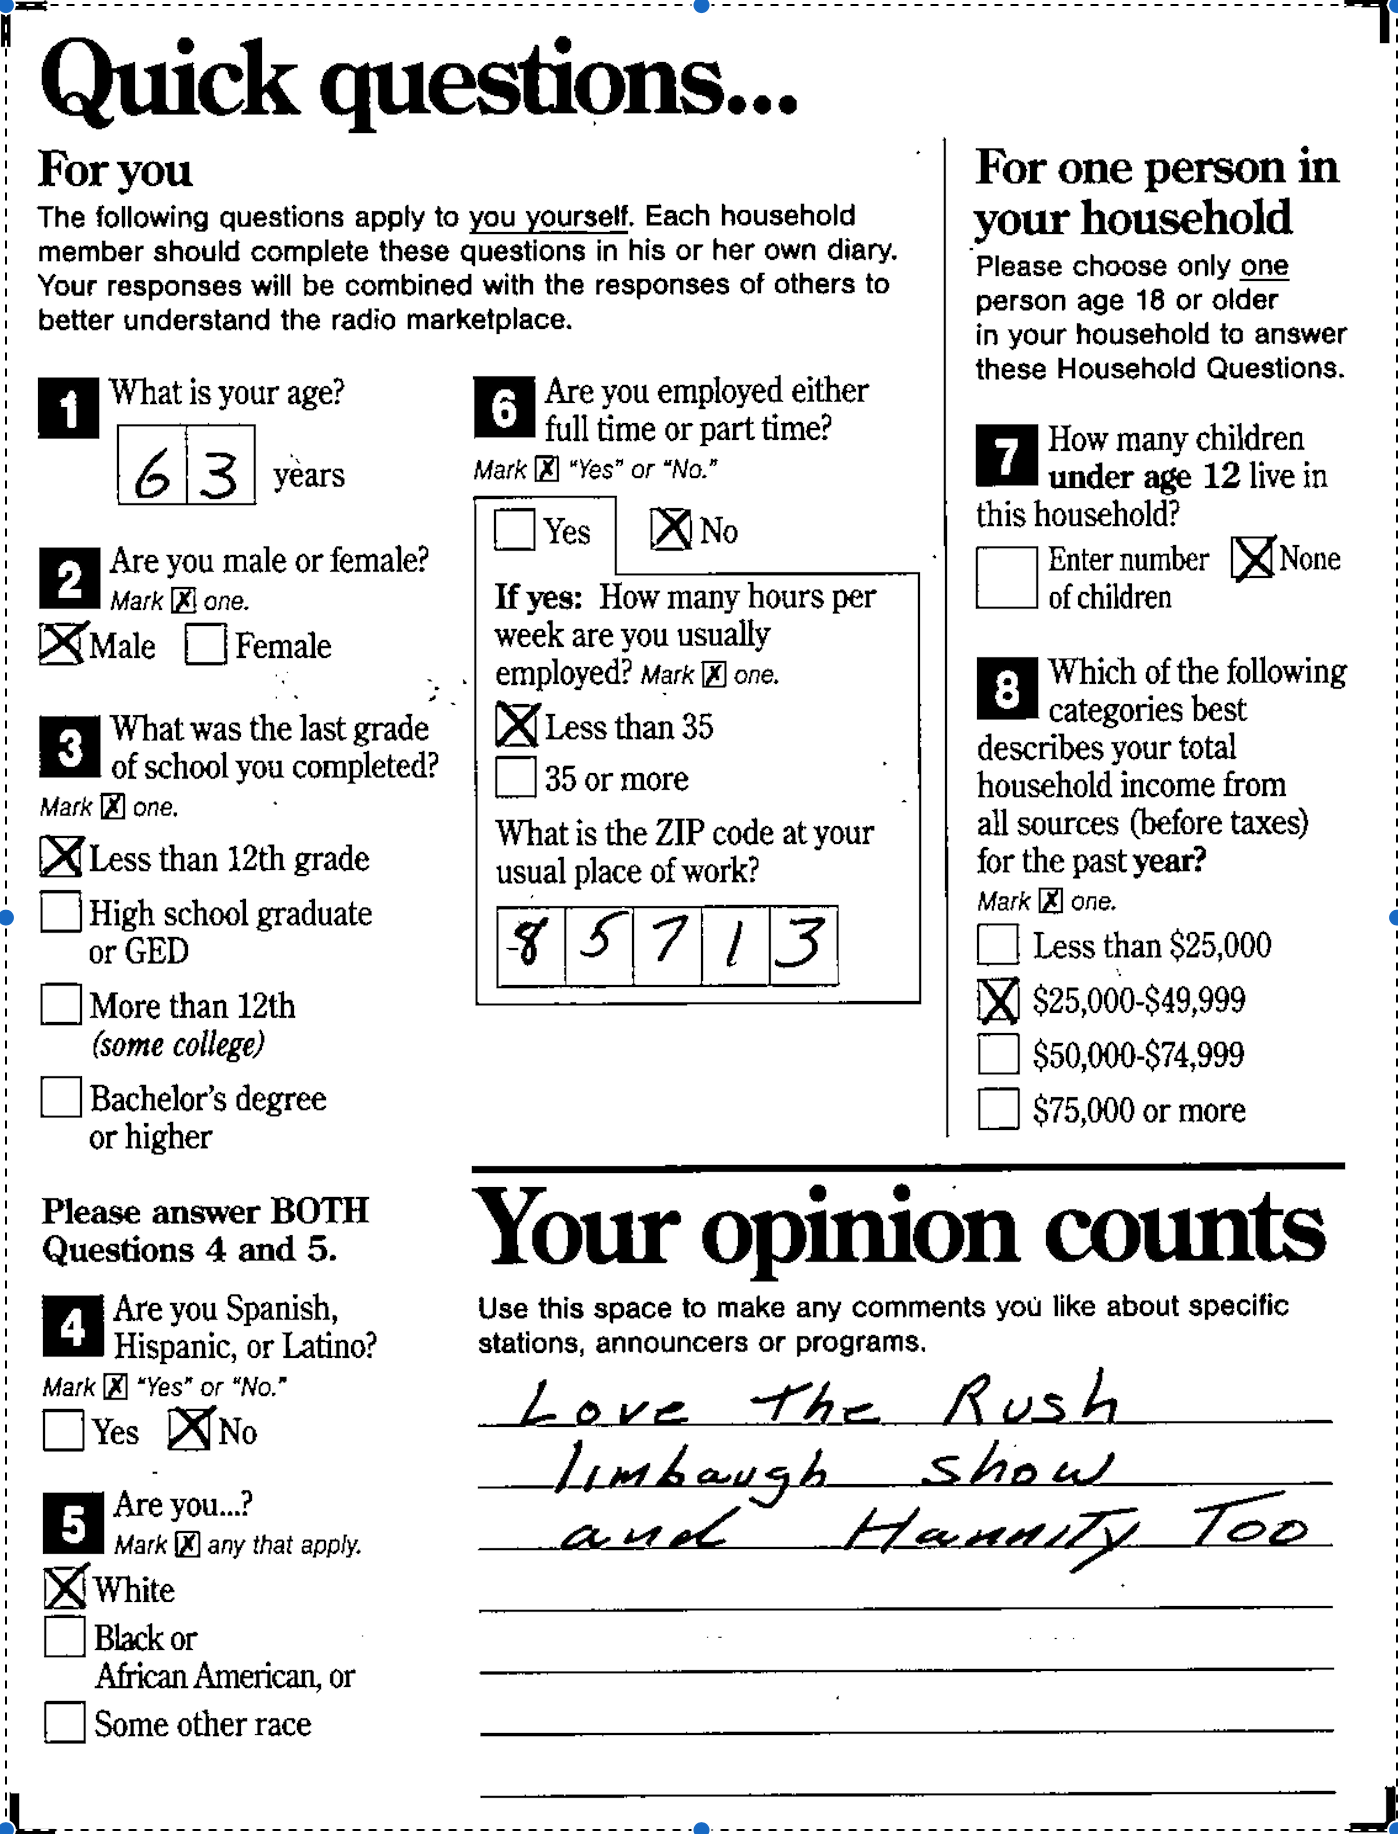 Quick questions...
For you
The following questions apply to you yourself. Each household
member should complete these questions in his or her own diary.
Your responses will be combined with the responses of others to
better understand the radio marketplace.
1 What is your age?
63 years
2 Are you male or female?
Mark X one.
X Male Female
3 What was the last grade
of school you completed?
Mark X one.
X Less than 12th grade
High school graduate
or GED
More than 12th
(some college)
Bachelor's degree
or higher
Please answer BOTH
Questions 4 and 5.
4 Are you Spanish,
Hispanic, or Latino?
Mark X "Yes" or "No."
Yes X No
5 Are you...?
Mark X any that apply.
X White
Black or
African American, or
Some other race
6 Are you employed either
full time or part time?
Mark X "Yes" or "No."
Yes X No
If yes: How many hours per
week are you usually
employed? Mark X one.
X Less than 35
35 or more
What is the ZIP code at your
usual place of work?
85713
For one person in
your household
Please choose only one
person age 18 or older
in your household to answer
these Household Questions.
7 How many children
under age 12 live in
this household?
Enter number X None
of children
8 Which of the following
categories best
describes your total
household income from
all sources (before taxes)
for the past year?
Mark X one.
Less than $25,000
X $25,000-$49,999
$50,000-$74,999
$75,000 or more
Your opinion counts
Use this space to make any comments you like about specific
stations, announcers or programs.
Love The Rush
limbaugh show
and Hannity Too